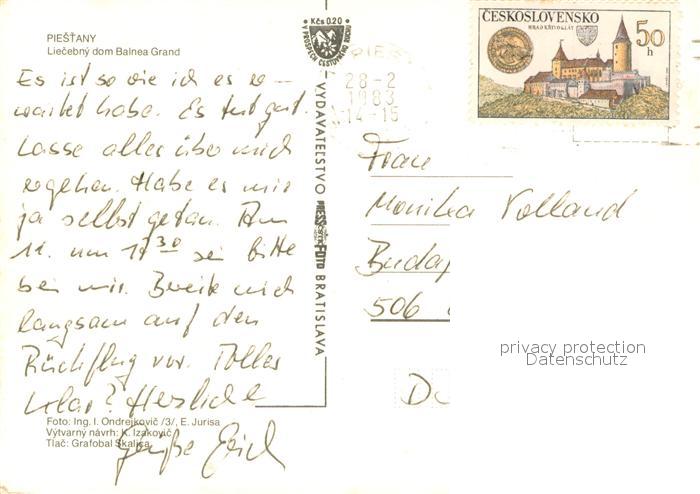 PIEŠŤANY
Liečebný dom Balnea Grand
Es ist so wie ich es er-
wartet habe. Es tut gut.
Lasse alles über mich
ergehen. Habe es mir
ja selbst getan. Am
11. um 17 30 sei bitte
bei mir. Bereite mich
langsam auf den
Rückflug vor. Tolles
klar? Herzliche
Grüße Erich
Foto: Ing. I. Ondrejkovič /3/, E. Jurisa
Výtvarný návrh: K. Izakovič
Tlač: Grafobal Skalica
Kčs 0.20
V PROSPECH CESTOVNÉHO RUCHU
VYDAVATEĽSTVO PRESSFOTO BRATISLAVA
PIEŠ
28-2
1983
14-15
ČESKOSLOVENSKO
HRAD KŘIVOKLÁT
50
h
Frau
Monika Volland
Budap
506
D
privacy protection
Datenschutz